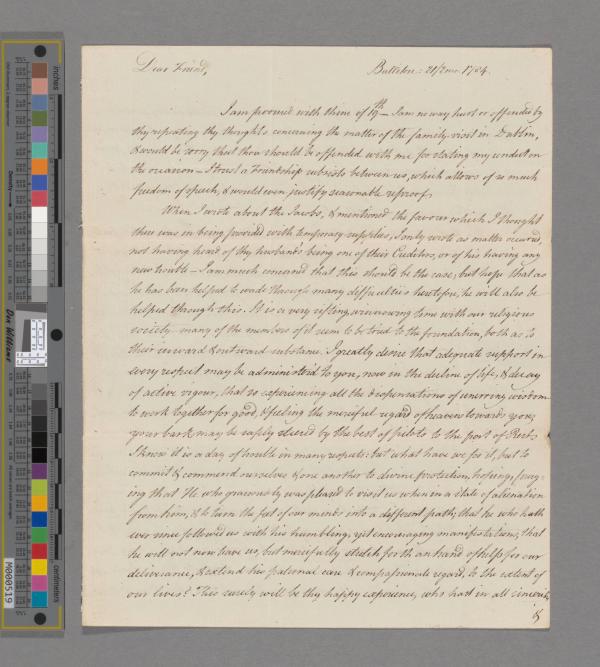 Dear Friend,
Ballitore: 21/2mo. 1784.
I am favoured with thine of 19th — I am no way hurt or offended by
thy repeating thy thoughts concerning the matter of the family visit in Dublin,
& would be sorry that thou should be offended with me for stating my conduct on
the occasion — I trust a Friendship subsists between us, which allows of so much
freedom of speech, & would even justify seasonable reproof.
When I wrote about the Jacobs, & mentioned the favour which I thought
there was in being provided with temporary supplies, I only wrote as matter occurred,
not having heard of thy husband's being one of their Creditors, or of his having any
new trouble — I am much concerned that this should be the case, but hope that as
he has been helped to wade through many difficulties heretofore, he will also be
helped through this. It is a very sifting, winnowing time with our religious
society — many of the members of it seem to be tried to the foundation, both as to
their inward & outward substance. I greatly desire that adequate support in
every respect may be administered to you, now in the decline of life, & decay
of active vigour, that so experiencing all the dispensations of unerring wisdom
to work together for good, & feeling the merciful regard of heaven towards you,
your bark may be safely steered by the best of pilots to the port of Rest.
I know it is a day of trouble in many respects: but what have we for it, but to
commit & commend ourselves & one another to divine protection, hoping, pray-
ing that He who graciously was pleased to visit us when in a state of alienation
from him, & to turn the feet of our minds into a different path, that he who hath
ever since followed us with his humbling, yet encouraging manifestations, that
he will not now leave us, but mercifully stretch forth an hand of help for our
deliverance, & extend his paternal care & compassionate regard, to the extent of
our lives? This surely will be thy happy experience, who hast in all sincerity
&
inches
centimeters
Don Williams
M000519